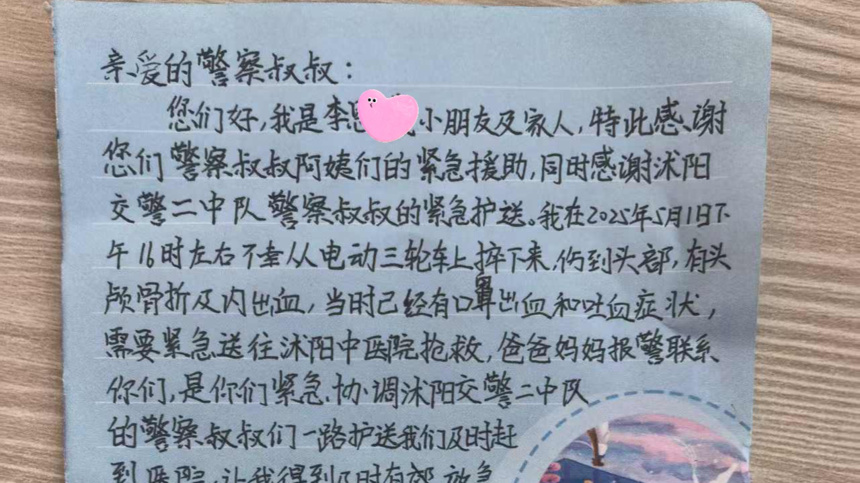 亲爱的警察叔叔：
您们好，我是李恩 小朋友及家人，特此感谢
您们警察叔叔阿姨们的紧急援助，同时感谢沭阳
交警二中队警察叔叔的紧急护送。我在2025年5月1日下
午16时左右不幸从电动三轮车上摔下来，伤到头部，有头
颅骨折及内出血，当时已经有口鼻出血和吐血症状，
需要紧急送往沭阳中医院抢救，爸爸妈妈报警联系
你们，是你们紧急协调沭阳交警二中队
的警察叔叔们一路护送我们及时赶
到医院，让我得到及时有效 放急